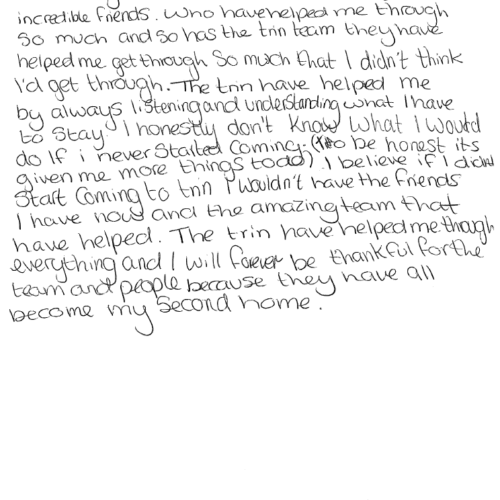 incredible friends. Who have helped me through
So much and so has the trin team they have
helped me get through So much that I didn't think
I'd get through. The trin have helped me
by always listening and understanding what I have
to Stay. I honestly don't know what I would
do If i never Started coming. (to be honest its
given me more things todo). I believe if I didn't
Start Coming to trin I wouldn't have the friends
I have now and the amazing team that
have helped. The trin have helped me through
everything and I will forever be thankful for the
team and people because they have all
become my Second home.